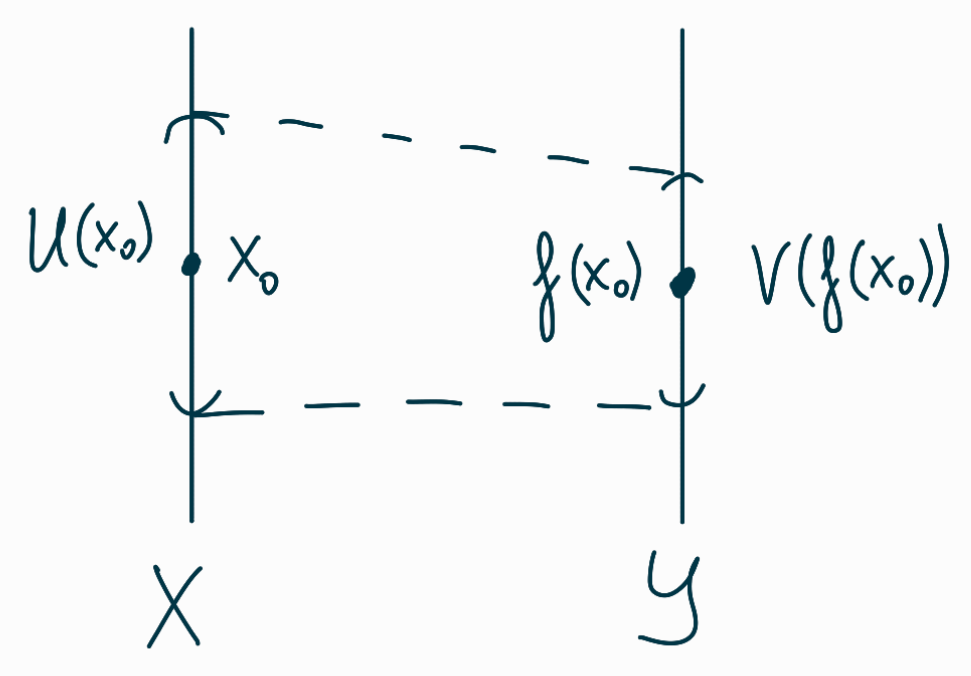 U(x₀) x₀ f(x₀) V(f(x₀))
X y